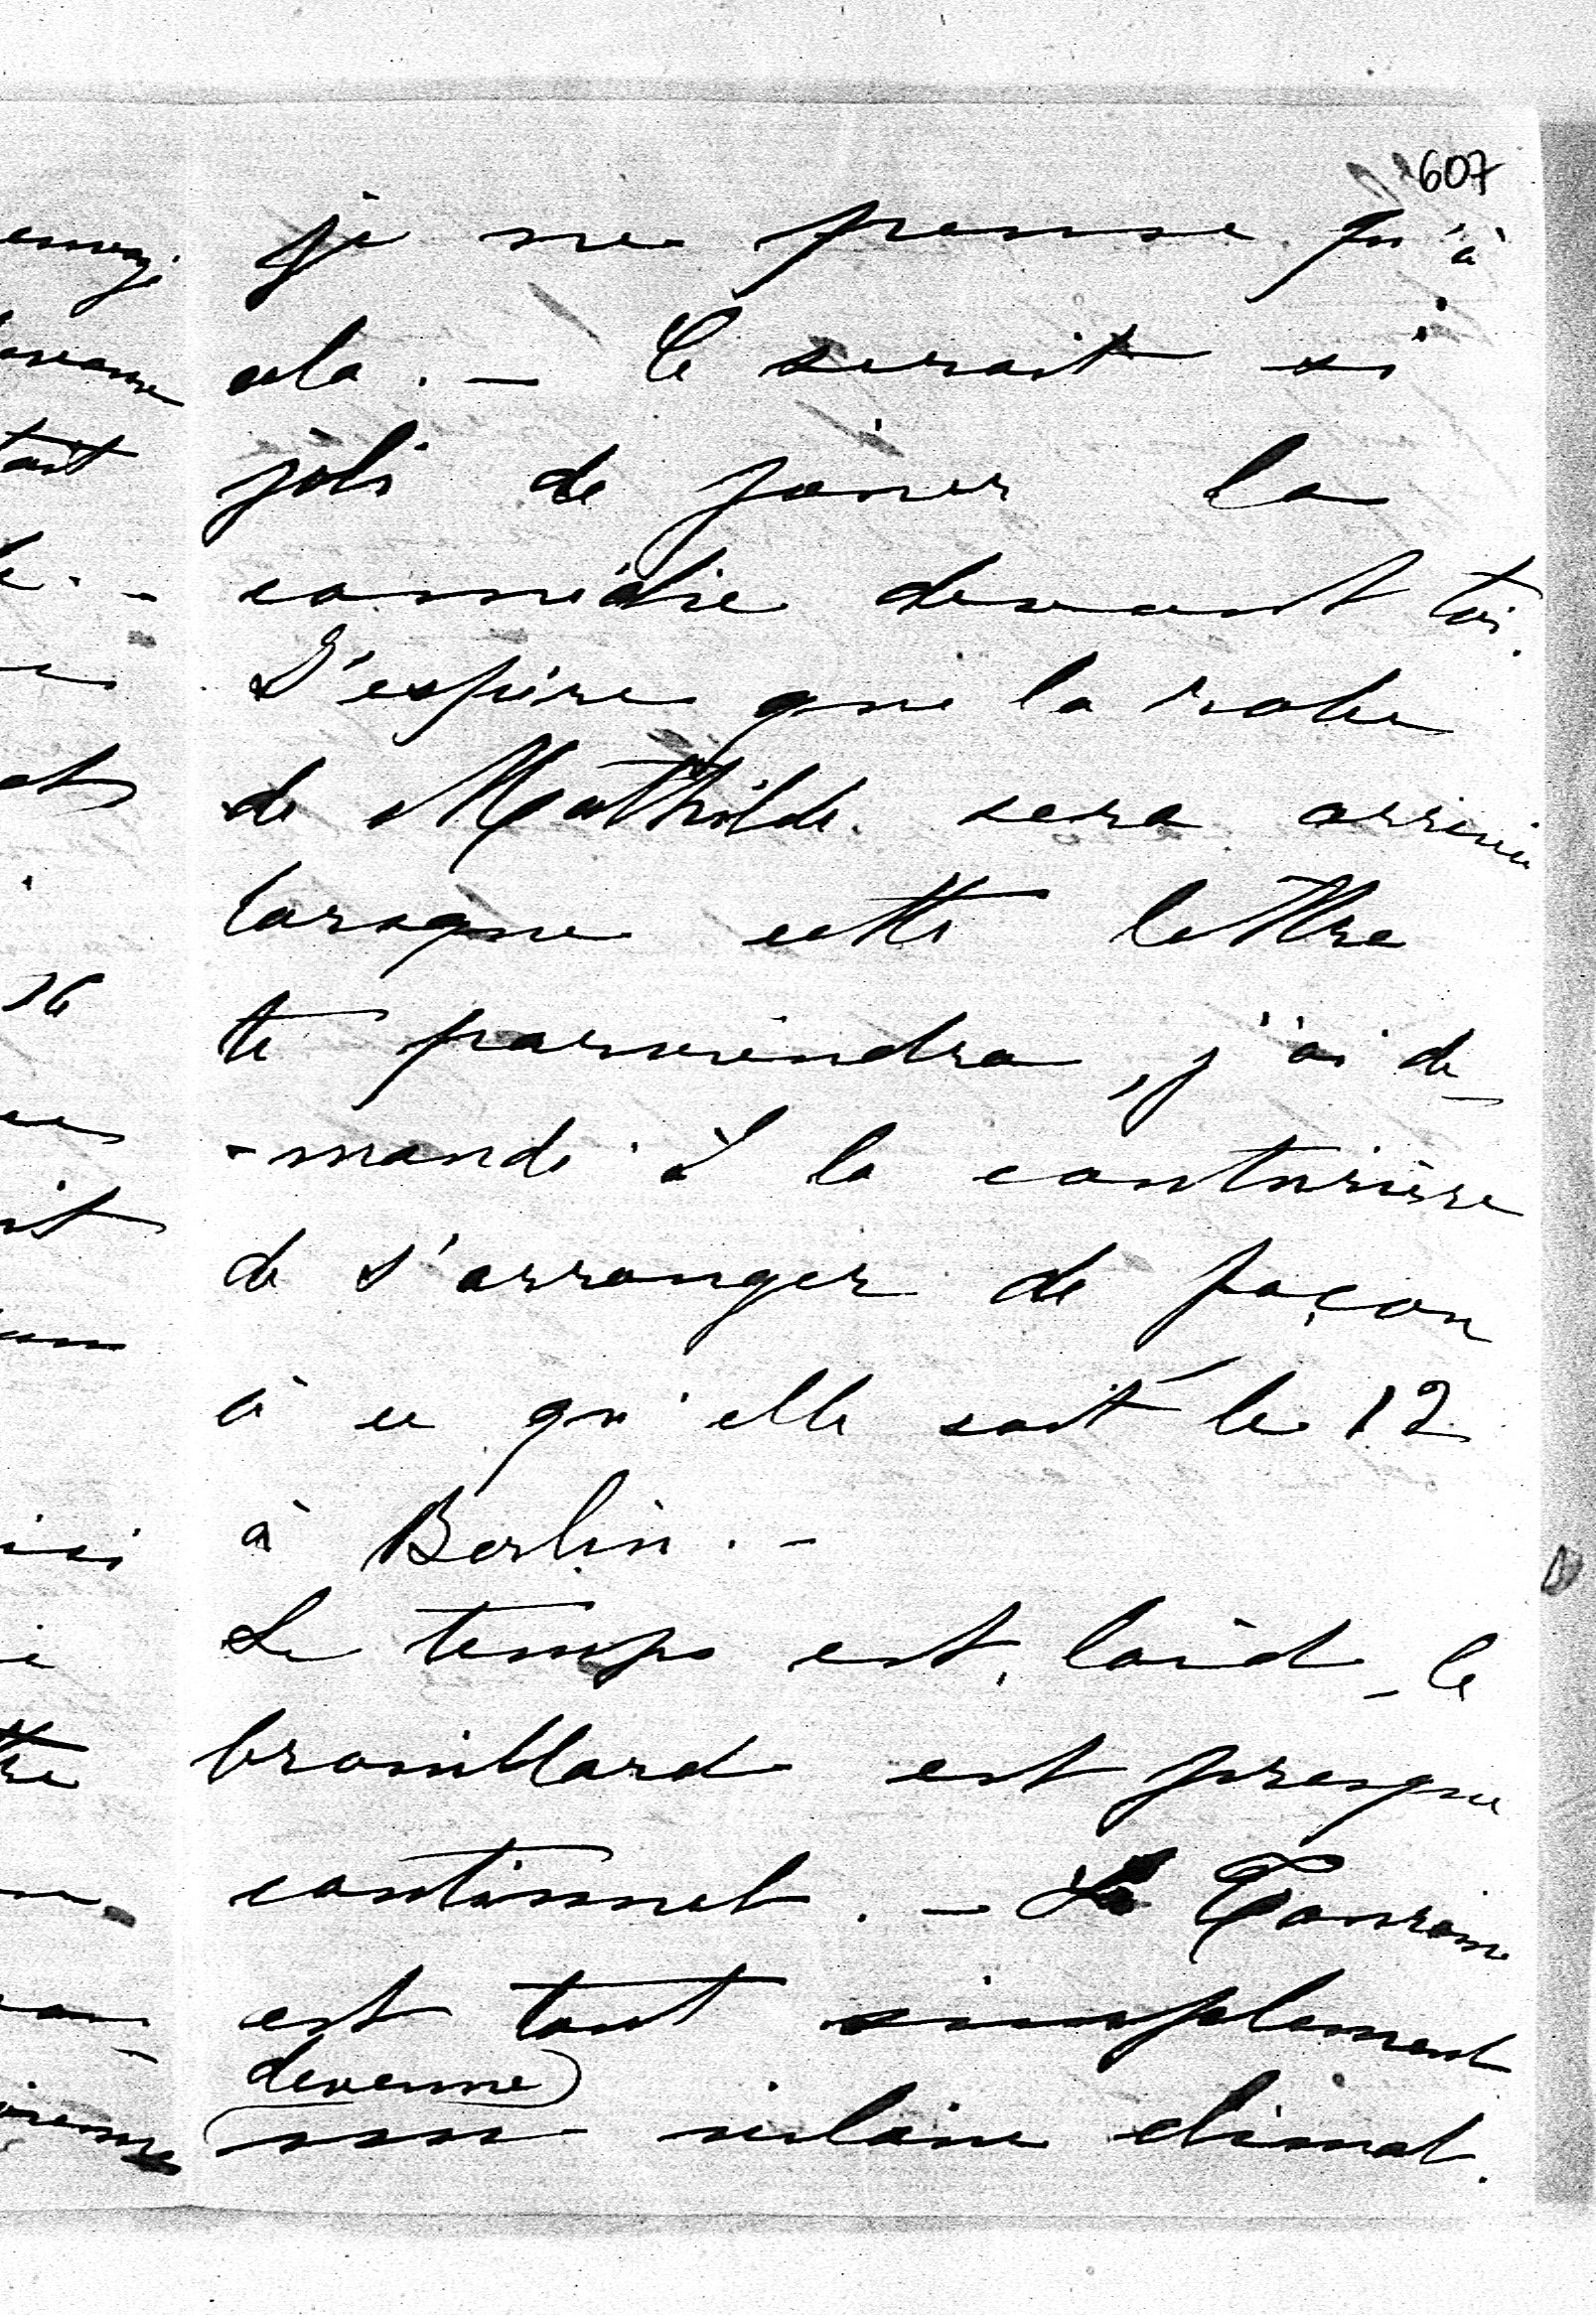 607
je ne pense qu'à
cela. — Ce serait si
joli de jouer la
comédie devant toi.
J'espère que la robe
de Mathilde sera arrivée
lorsque cette lettre
te parviendra, j'ai de-
-mandé à la couturière
de s'arranger de façon
à ce qu'elle soit le 12
à Berlin. -
Le temps est laid - le
brouillard est presque
continuel. - La Touraine
est tout simplement
devenue
un vilain climat.
tout
16
ici